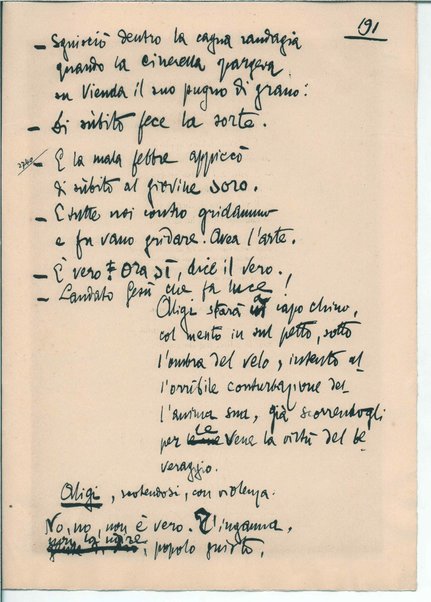 191
– Sguisciò dentro la cagna randagia
quando la Cinerella spargeva
su Vienda il suo pugno di grano:
– Di sùbito fece la sorte.
– E la mala febbre appiccò
di sùbito al giovine soro.
– E tutte noi contro gridammo
e fu vano gridare. Avea l'arte.
– È vero! Ora sì, dice il vero.
– Laudato Gesù che fa luce!
Aligi starà a capo chino,
col mento in sul petto, sotto
l'ombra del velo, intento al-
l'orribile conturbazione del-
l'anima sua, già scorrendogli
per le vene la virtù del be
veraggio.
Aligi, scotendosi, con violenza.
No, no, non è vero. T'inganna,
popolo giusto,